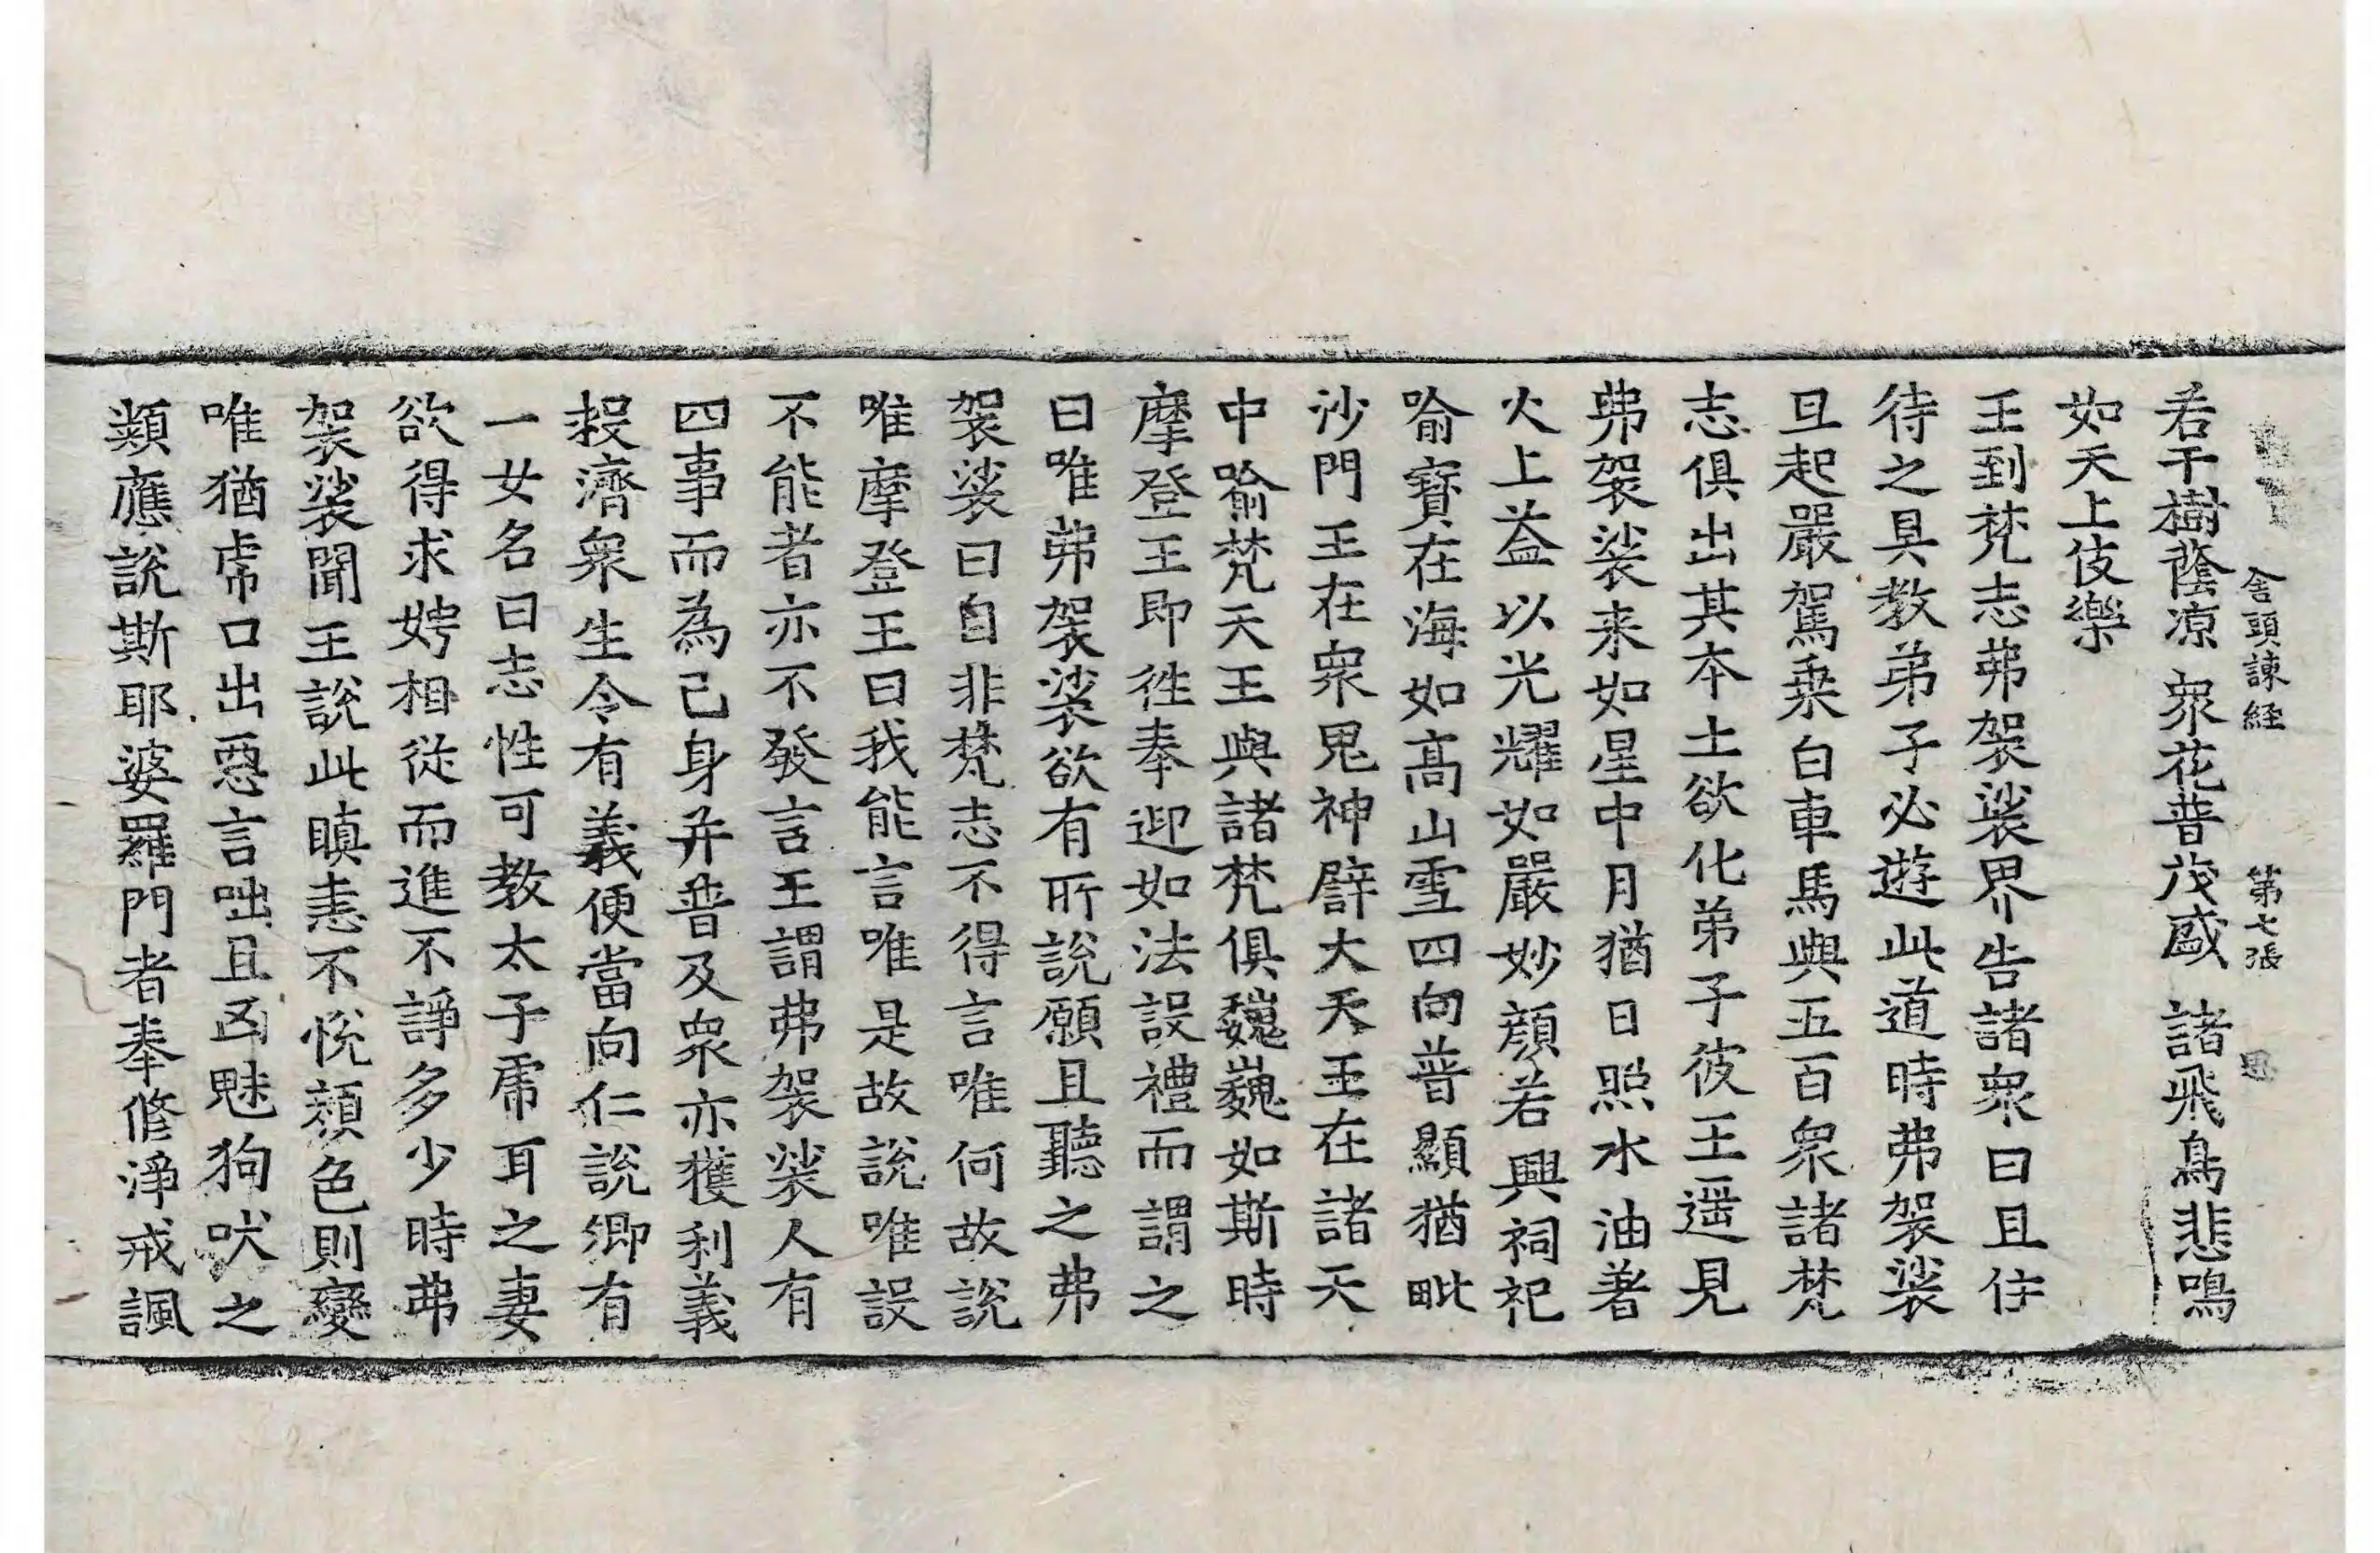 舍頭諫経 第七張 思
若干樹蔭凉 衆花普茂盛 諸飛鳥悲鳴
如天上伎樂
王到梵志弗袈裟界告諸衆曰且住
待之具教弟子必遊此道時弗袈裟
旦起嚴駕乗白車馬與五百衆諸梵
志俱出其本土欲化弟子彼王遥見
弗袈裟来如星中月猶日照水油著
火上益以光耀如嚴妙顔若興祠祀
喻寶在海如高山雪四向普顯猶毗
沙門王在衆鬼神譬大天王在諸天
中喻梵天王與諸梵俱巍巍如斯時
摩登王即徃奉迎如法設禮而謂之
曰唯弗袈裟欲有所說願且聽之弗
袈裟曰自非梵志不得言唯何故說
唯摩登王曰我能言唯是故說唯設
不能者亦不發言王謂弗袈裟人有
四事而為己身并普及衆亦獲利義
救濟衆生令有義便當向仁說卿有
一女名曰志性可教太子虎耳之妻
欲得求娉相從而進不諍多少時弗
袈裟聞王說此瞋恚不悅顔色則變
唯猶虎口出惡言咄且凶魅狗吠之
類應說斯耶婆羅門者奉修淨戒諷